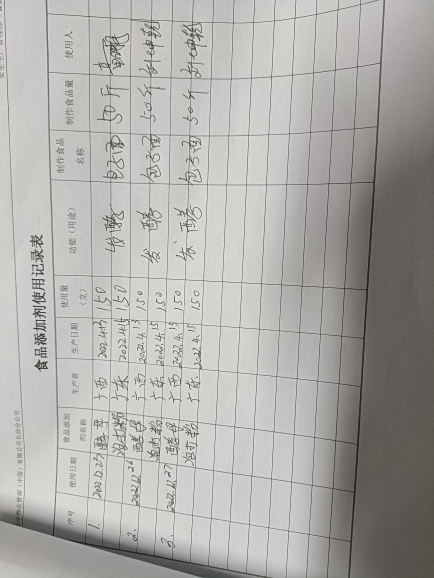 食品添加剂使用记录表
序号 使用日期 食品添加剂名称 生产者 生产日期 使用量(克) 功能(用途) 制作食品名称 制作食品量 使用人
1. 2022.12.22 酵母 广西 2022.4.13 150 发酵 包子面 50斤
泡打粉 广东 2022.4.15 150
2、 2022.12.26 酵母 广西 2022.4.13 150 发酵 包子面 50斤
泡打粉 广东 2022.4.15 150
3、 2022.12.27 酵母 广西 2022.4.13 150 发酵 包子面 50斤
泡打粉 广东 2022.4.15 150